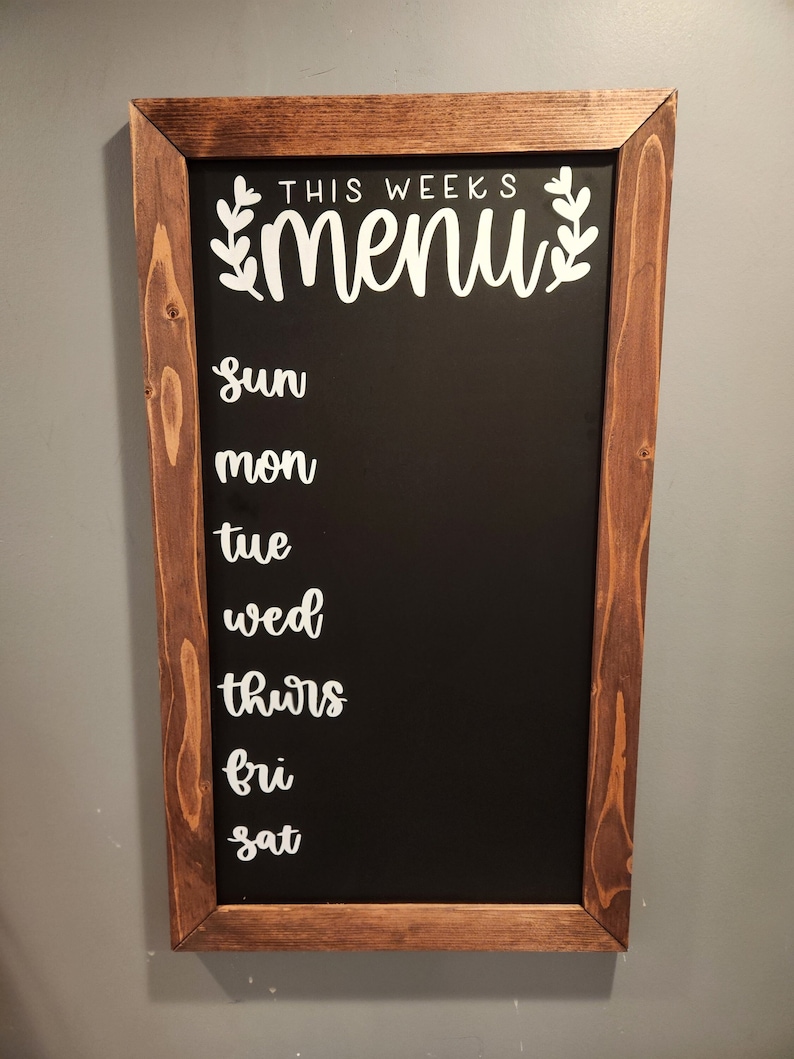 THIS WEEKS
menu
sun
mon
tue
wed
thurs
fri
sat